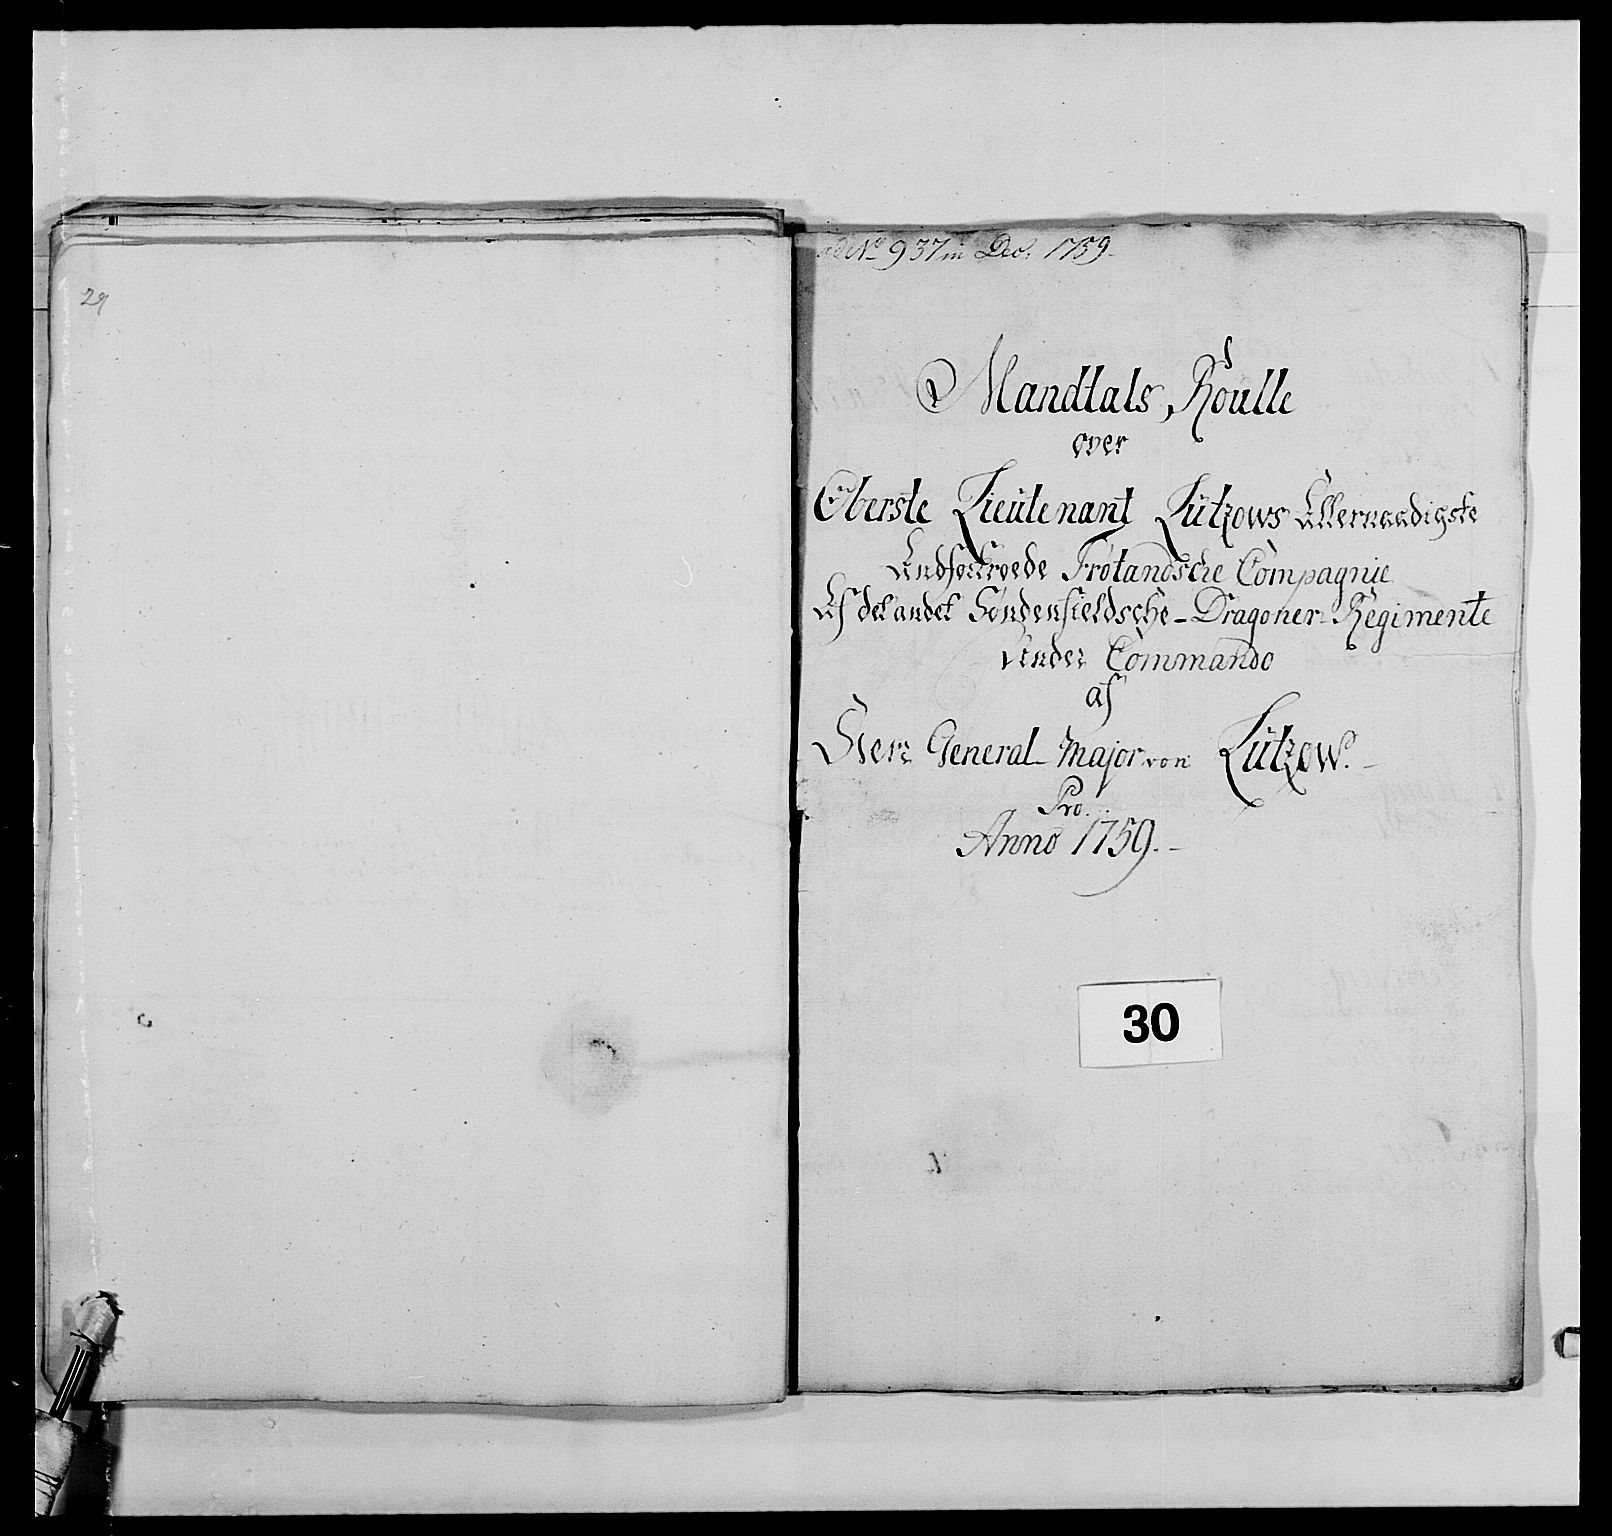 29
ad No 937 in Dec: 1759.
Mandtals Roulle
over
Oberste Lieutenant Lützows Allernaadigste
Trøtandsche Compagnie
Af det andet Søndenfieldsche - Dragoner - Regimente
Under Commando
af
Herr General - Major von Lützow. -
Pro.
Anno 1759. -
30